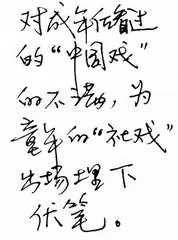 对成年后看过
的“中国戏”
的不满，为
童年的“社戏”
出场埋下
伏笔。